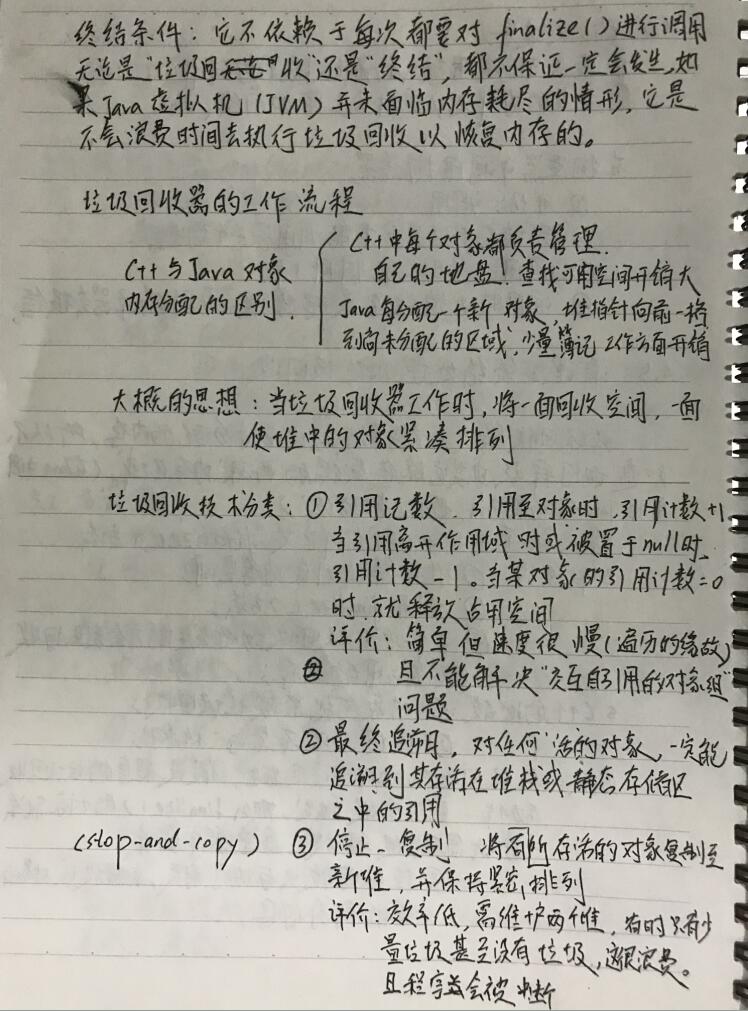 终结条件：它不依赖于每次都要对 finalize()进行调用
无论是"垃圾回收"还是"终结"，都不保证一定会发生，如
果Java虚拟机（JVM）并未面临内存耗尽的情形，它是
不会浪费时间去执行垃圾回收以恢复内存的。
垃圾回收器的工作流程
C++与Java对象
内存分配的区别.
C++中每个对象都负责管理
自己的地盘！查找可用空间开销大
Java每分配一个新对象，堆指针向前一格
到尚未分配的区域，少量簿记工作方面开销
大概的思想：当垃圾回收器工作时，将一面回收空间，一面
使堆中的对象紧凑排列
垃圾回收技术分类：①引用记数．引用至对象时，引用计数+1
当引用离开作用域时或被置于null时，
引用计数-1。当某对象的引用计数=0
时，就释放占用空间
评价：简单但速度很慢(遍历的缘故)
且不能解决"交互自引用的对象组"
问题
②最终追溯，对任何"活"的对象，一定能
追溯到其存活在堆栈或静态存储区
之中的引用
(stop-and-copy) ③停止-复制 将所有存活的对象复制至
新堆，并保持紧密排列
评价：效率低，需维护两个堆，有时只有少
量垃圾甚至没有垃圾，这很浪费。
且程序会被中断